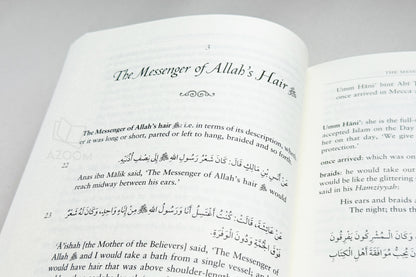 3
The Messenger of Allah's Hair ﷺ
The Messenger of Allah's hair ﷺ: i.e. in terms of its description, whether
it was long or short, parted or left to hang, braided and so forth.
عَنْ أَنَسِ بْنِ مَالِكٍ قَالَ: كَانَ شَعْرُ رَسُولِ اللهِ ﷺ إِلَى نِصْفِ أُذُنَيْهِ.
22
Anas ibn Mālik said, 'The Messenger of Allah's hair ﷺ would
reach midway between his ears.'
23
عَنْ عَائِشَةَ، قَالَتْ: كُنْتُ أَغْتَسِلُ أَنَا وَرَسُولُ اللهِ ﷺ مِنْ إِنَاءٍ وَاحِدٍ، وَكَانَ لَهُ شَعْرٌ
فَوْقَ الْجُمَّةِ وَدُونَ الْوَفْرَةِ.
'Ā'ishah [the Mother of the Believers] said, 'The Messenger of
Allah ﷺ and I would take a bath from a single vessel; and
would have hair that was above shoulder-length
AZOOM
THE MESSEN
Umm Hāni' bint Abī T
once arrived in Mecca
Umm Hāni': she is the full-
accepted Islam on the Day
her on that day, 'We give
protection.'
once arrived: which
braids: he would take out
be like the glittering
said in his Hamziyyah:
His ears and braids
The night; thus th
كَانَ الْمُشْرِكُونَ يَفْرِقُونَ
يُحِبُّ مُوَافَقَةَ أَهْلِ الْكِتَابِ